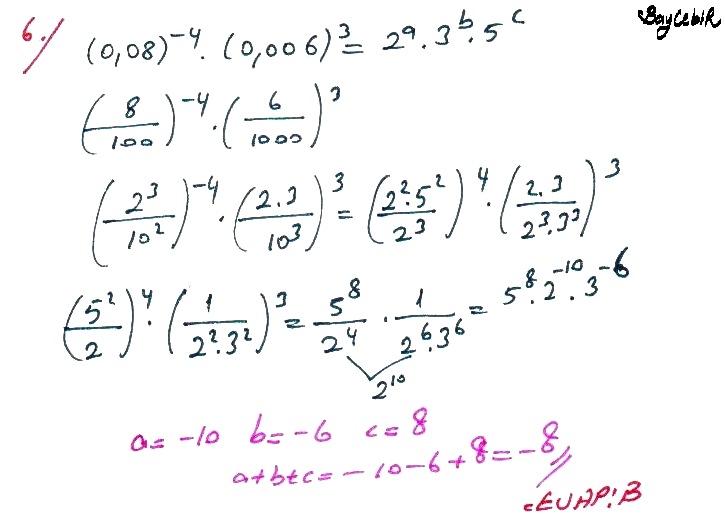 BayCebiR
6.) (0,08)^-4 . (0,006)^3 = 2^a . 3^b . 5^c
(8/100)^-4 . (6/1000)^3
(2^3/10^2)^-4 . (2.3/10^3)^3 = (2^2.5^2/2^3)^4 . (2.3/2^3.3^3)^3
(5^2/2)^4 . (1/2^2.3^2)^3 = 5^8/2^4 . 1/2^6.3^6 = 5^8.2^-10.3^-6
2^10
a=-10 b=-6 c=8
a+b+c=-10-6+8=-8
CEVAP:B